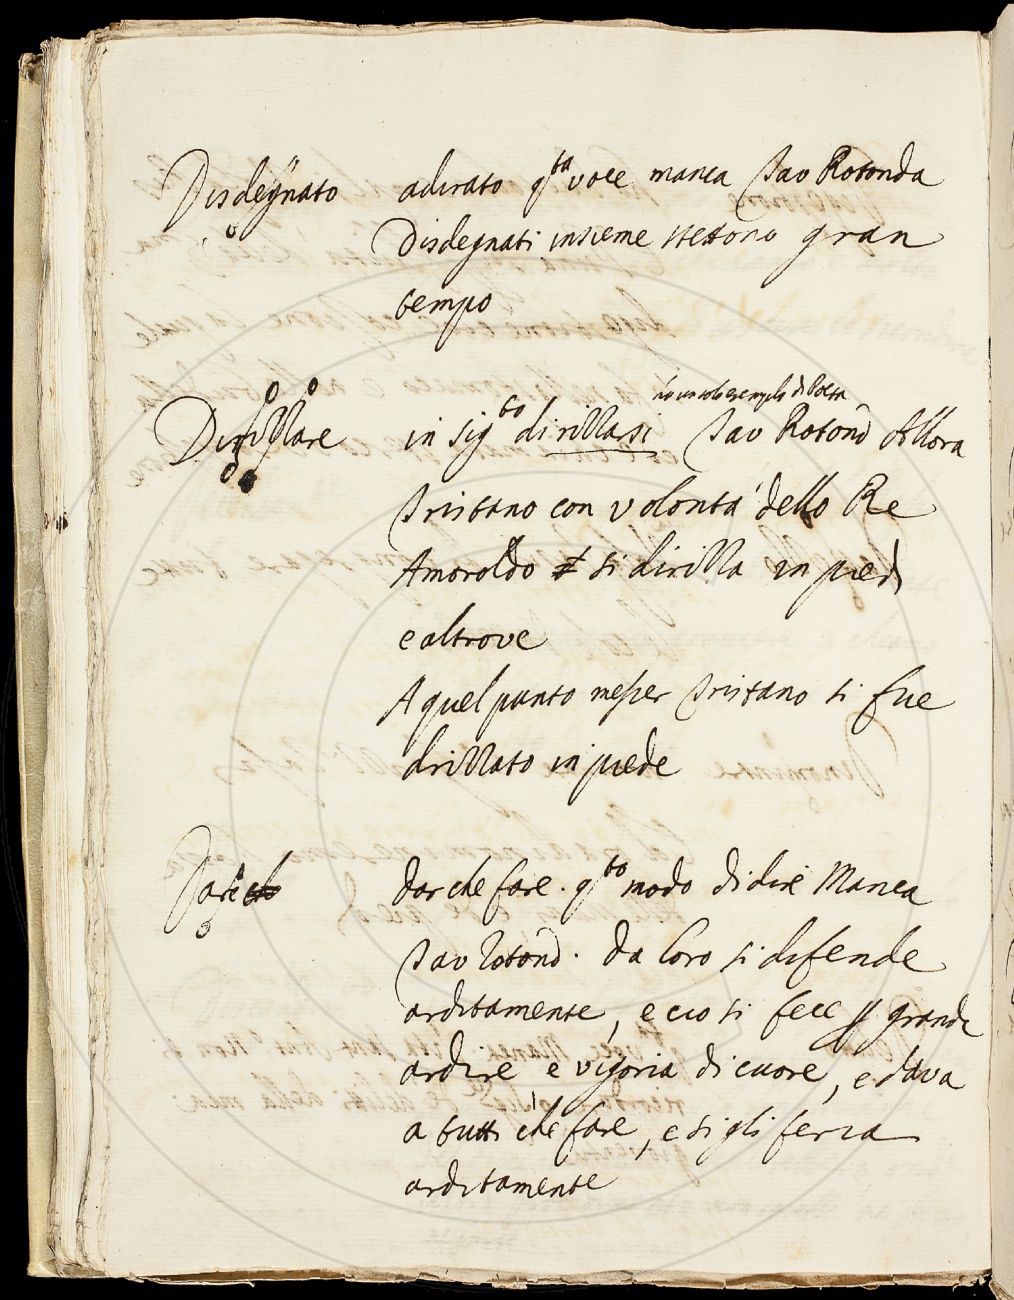 Disdegnato adirato q.ta voce manca Tav Rotonda
Disdegnati insieme stettono gran
tempo
Dirizzare in sig.to dirizzarsi Tav Rotond Allora
Tristano con volontà dello Re
Amoroldo si dirizza in piedi
e altrove
A quel punto messer Tristano si fue
drizzato in piede
Dare dar che fare. q.to modo di dire Manca
Tav Rotond. da loro si difende
arditamente, e cio si fece p grande
ardire e vigoria di cuore, e dava
a tutti che fare, e si gli feria
arditamente